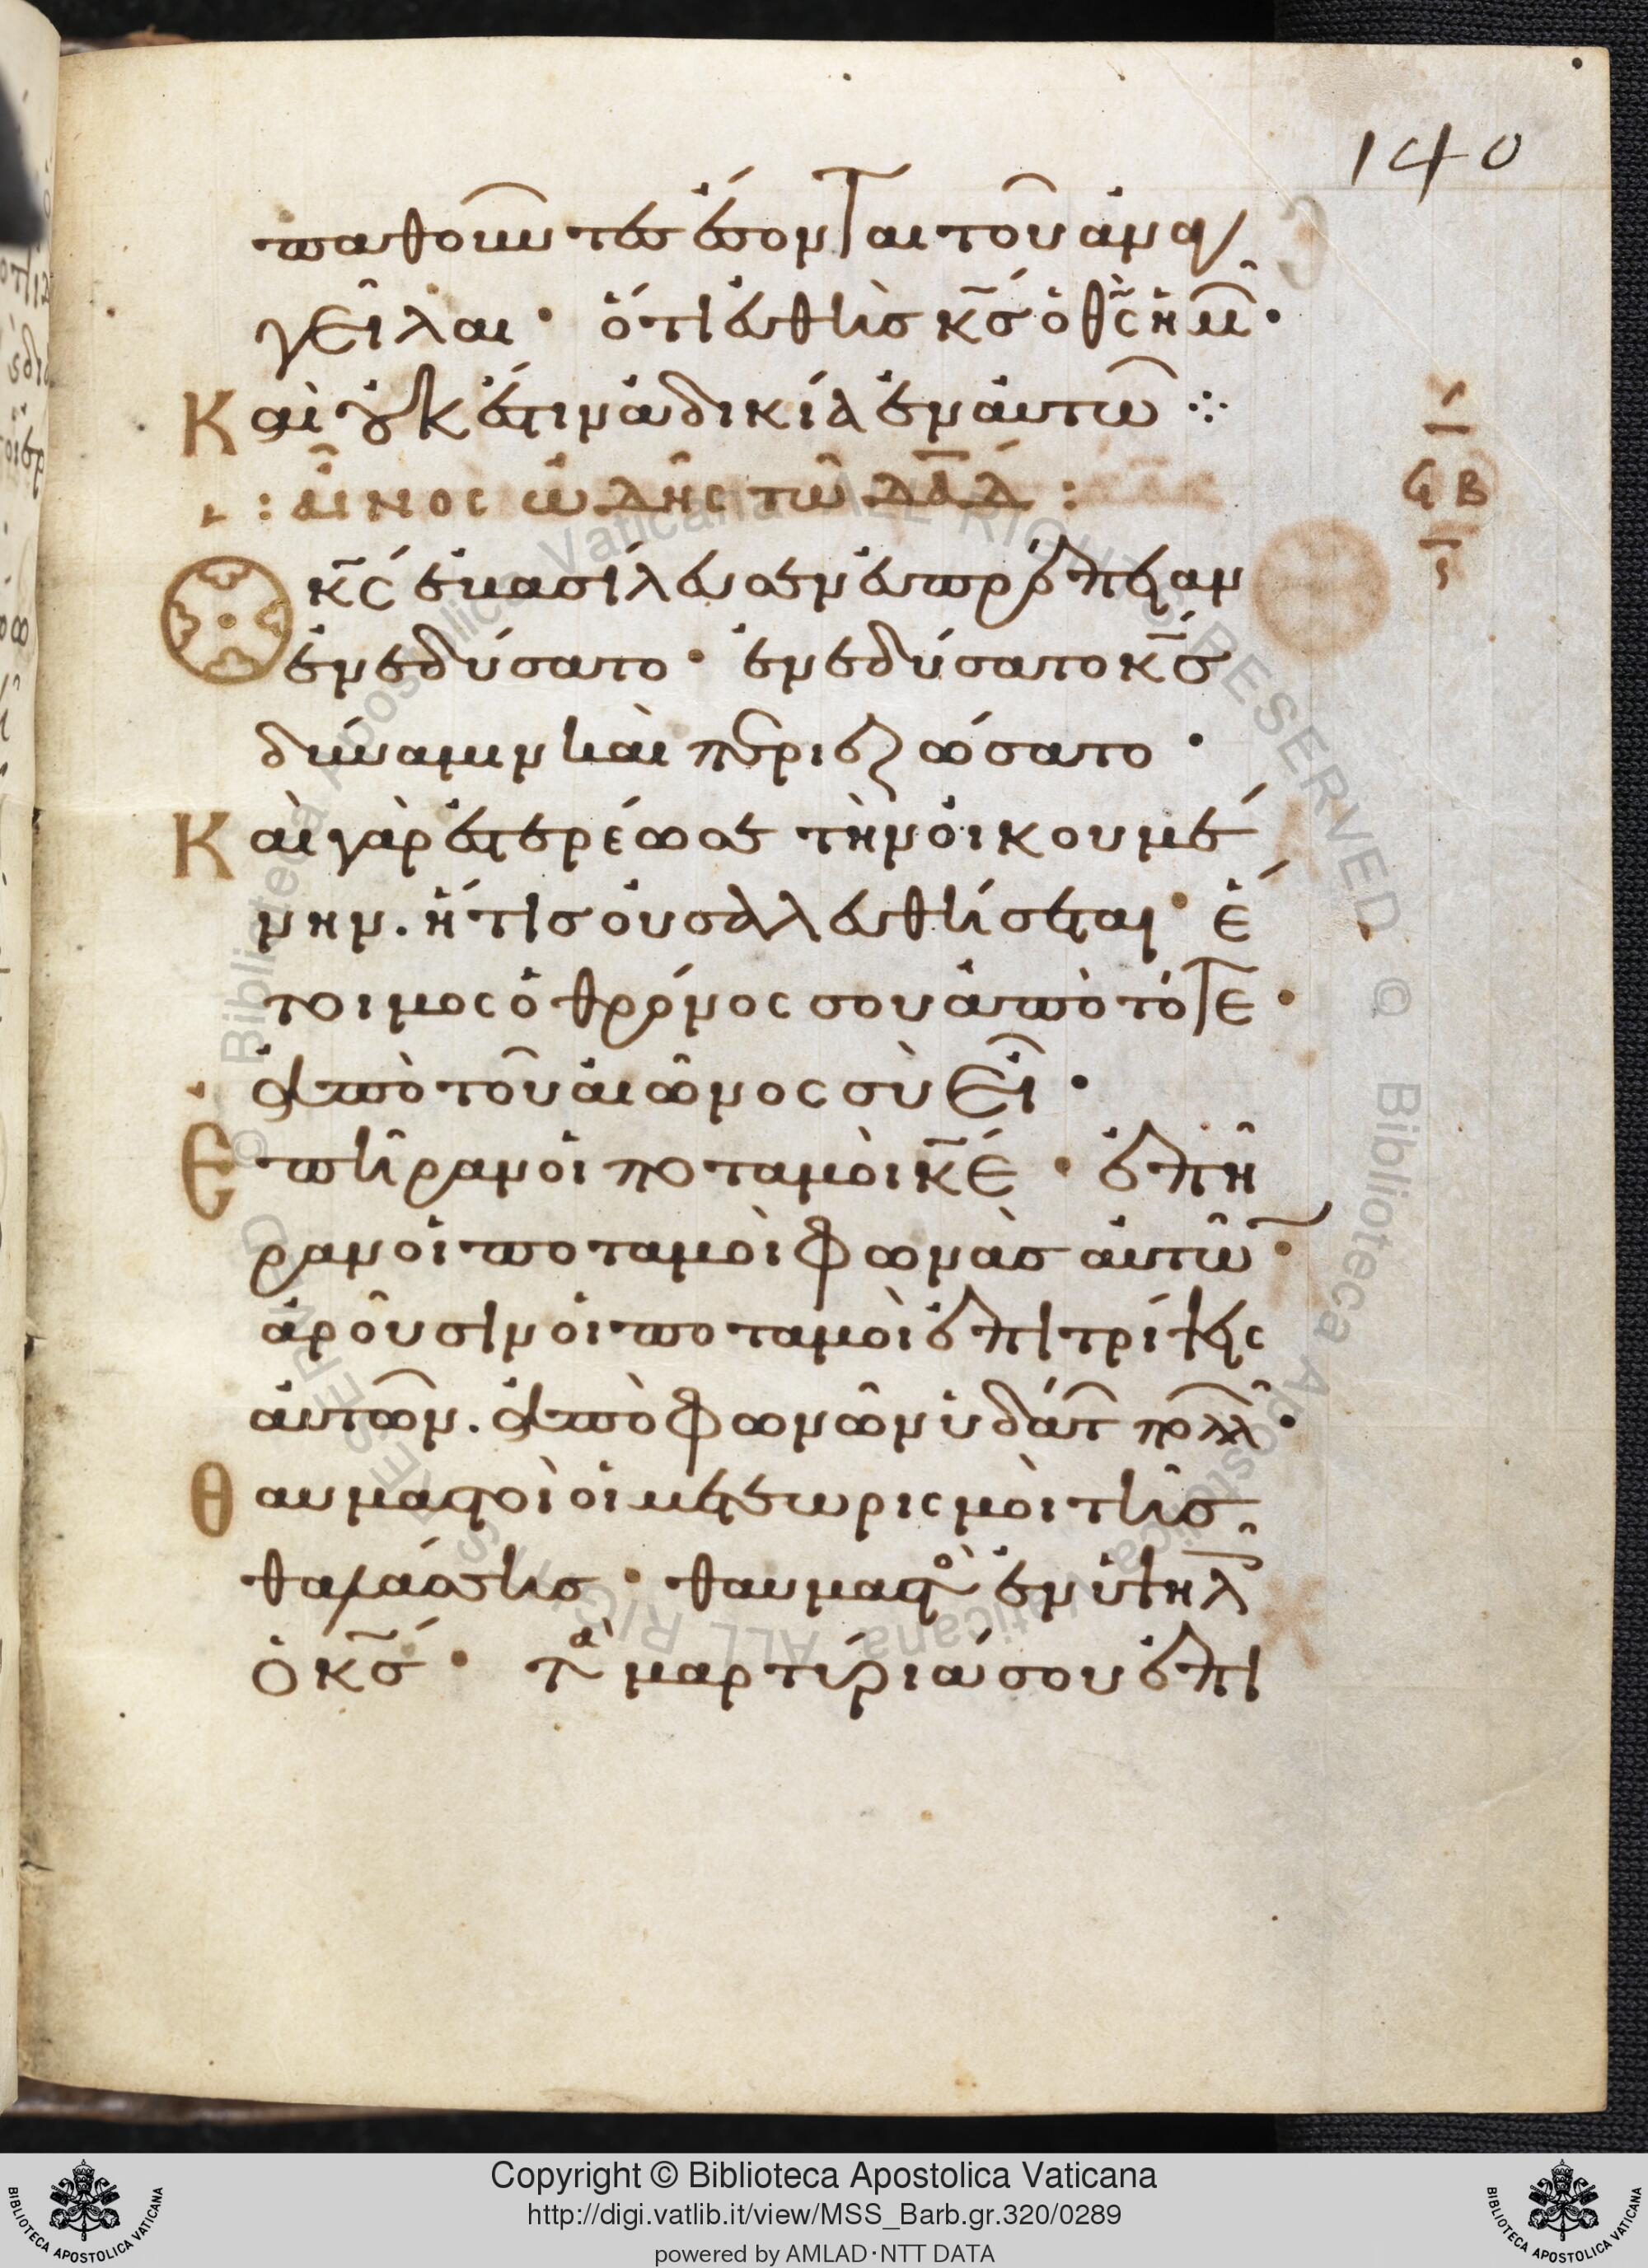 140
παθοῦντες ἔσονται τοῦ ἀναγ
γεῖλαι· ὅτι εὐθὴς κ̅ς̅ ὁ θ̅ς̅ ἡμῶ̅·
Καὶ οὐκ ἔστιν ἀδικία ἐν αὐτῶ
αἶνος ὠδῆς τῶ δᾱδ̄
Ο κ̅ς̅ ἐβασίλευσεν εὐπρέπειαν
ἐνεδύσατο· ἐνεδύσατο κ̅ς̅
δύναμιν καὶ περιεζώσατο·
Καὶ γὰρ ἐστερέωσε τὴν οἰκουμέ
νην. ἥτις οὐ σαλευθήσεται· ἕ
τοιμος ὁ θρόνος σου ἀπὸ τότε·
ἀπὸ τοῦ αἰῶνος σὺ εἶ·
Ἐπῆραν οἱ ποταμοὶ κ̅ε̅· ἐπῆ
ραν οἱ ποταμοὶ φωνὰς αὐτῶ̅·
ἀροῦσιν οἱ ποταμοὶ ἐπιτρίψεις
αὐτῶν. ἀπὸ φωνῶν ὑδάτ πολλ·
Θαυμαστοὶ οἱ μετεωρισμοὶ τῆς
θαλάσσης· θαυμαστὸς ἐν ὑψηλ
ὁ κ̅ς̅· τὰ μαρτύριά σου ἐπι
Copyright © Biblioteca Apostolica Vaticana
http://digi.vatlib.it/view/MSS_Barb.gr.320/0289
powered by AMLAD·NTT DATA
BIBLIOTECA APOSTOLICA VATICANA
BIBLIOTECA APOSTOLICA VATICANA